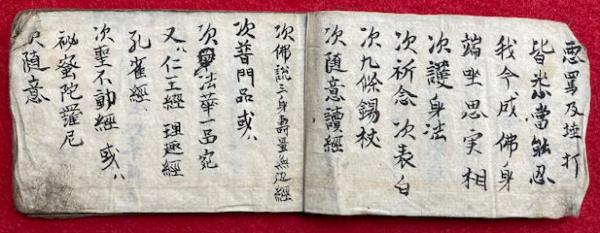 悪罵及捶打
皆悉當能忍
我今成佛身
端坐思実相
次護身法
次祈念 次表白
次九條錫杖
次随意讀經
次佛説三身壽量無邊經
次普門品或ハ
次法華一品宛
又ハ仁王經 理趣經
孔雀經
次聖不動經 或ハ
祕蜜陀羅尼
次随意